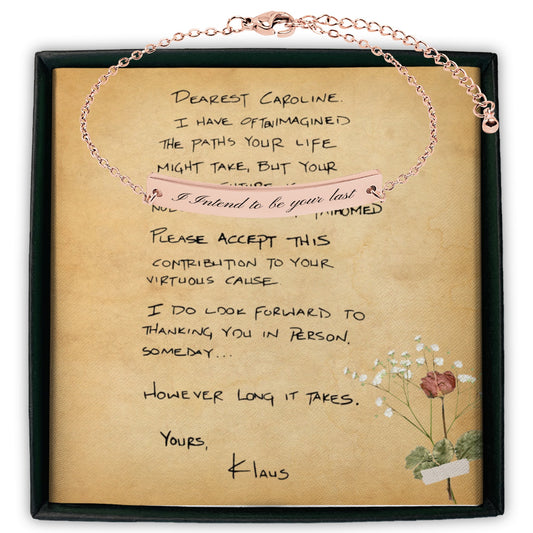 DEAREST CAROLINE.
I HAVE OFTEN IMAGINED
THE PATHS YOUR LIFE
MIGHT TAKE, BUT YOUR
I Intend to be your last
PLEASE ACCEPT THIS
CONTRIBUTION TO YOUR
VIRTUOUS CAUSE
I DO LOOK FORWARD TO
THANKING YOU IN PERSON.
SOMEDAY...
HOWEVER LONG IT TAKES.
YOURS,
KLAUS